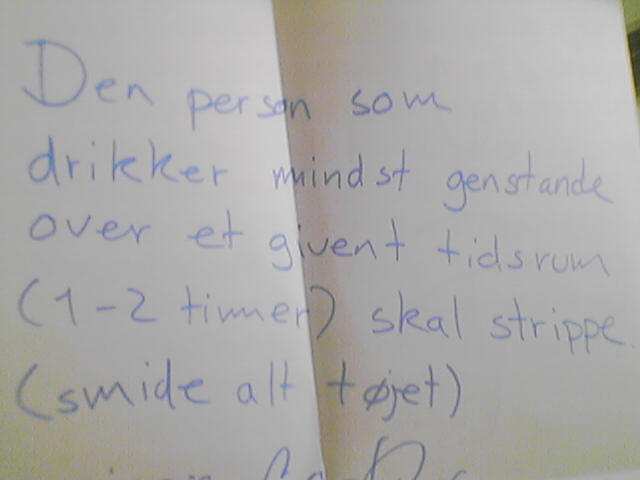 Den person som
drikker mindst genstande
over et givent tidsrum
(1-2 timer) skal strippe.
(smide alt tøjet)